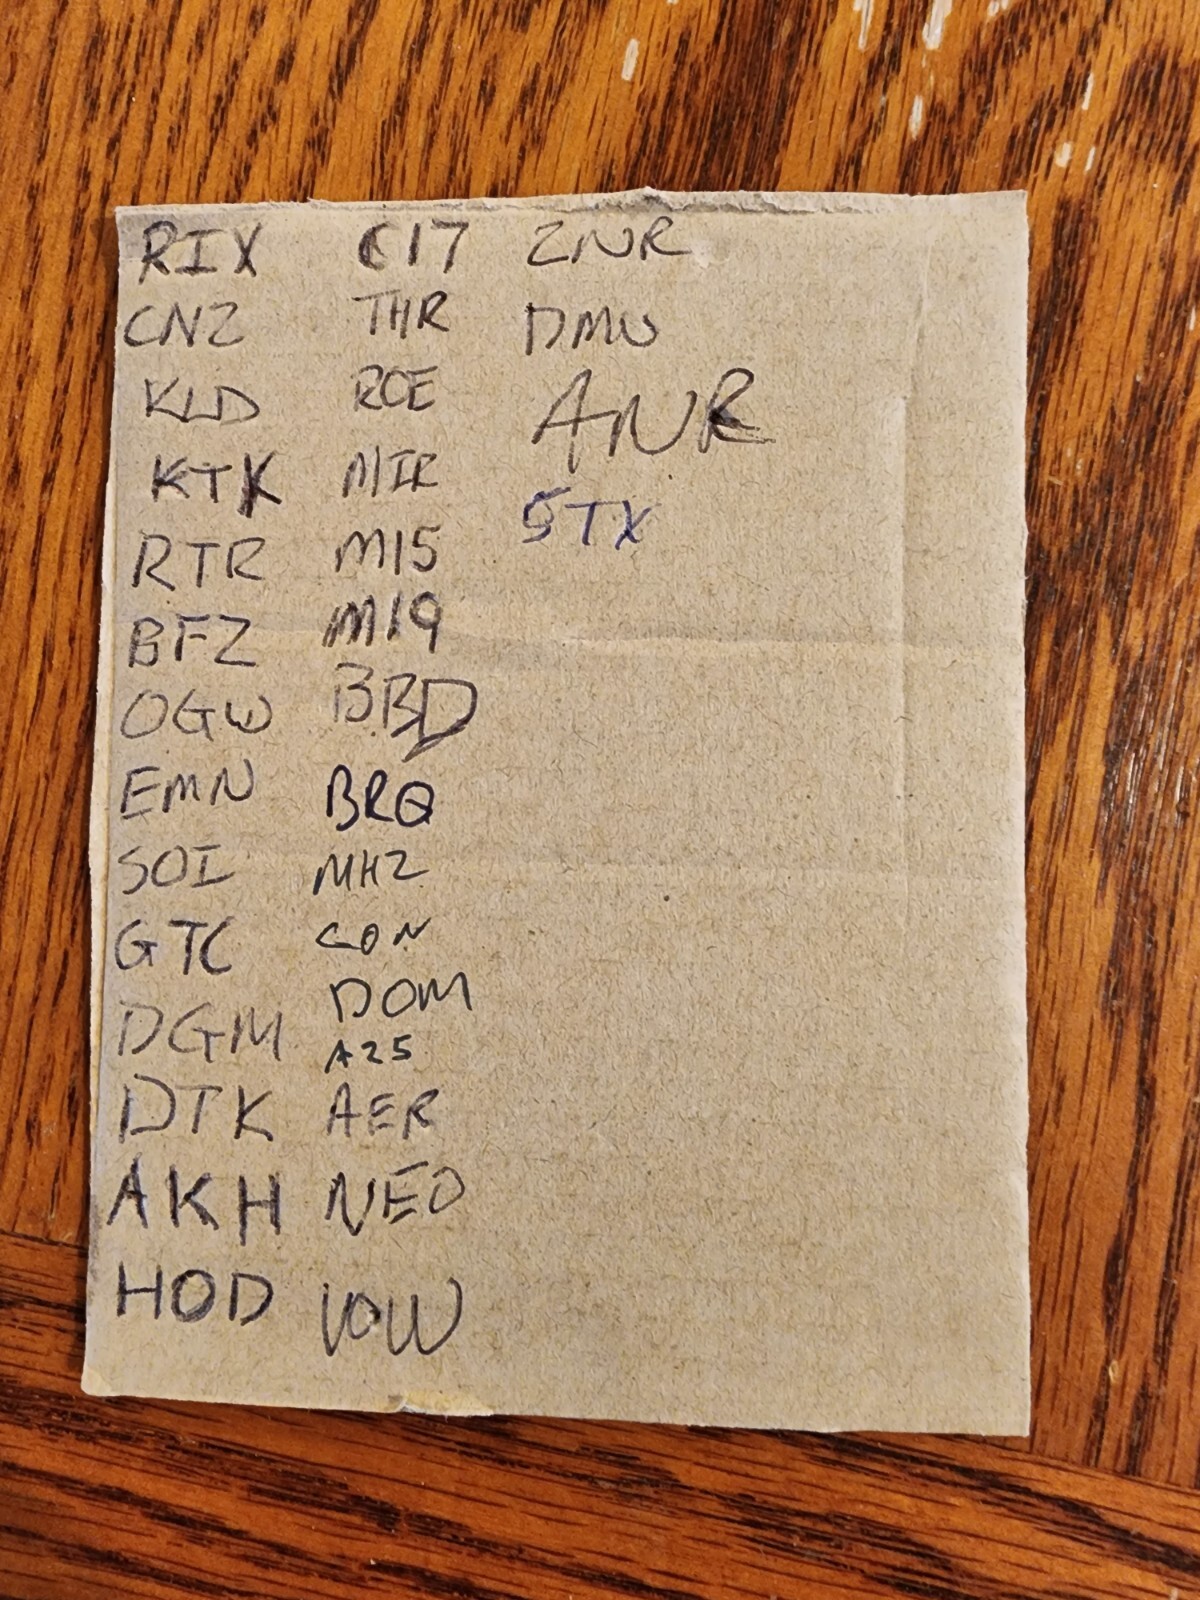 RIX
CNZ
KLD
KTK
RTR
BFZ
OGW
EMN
SOI
GTC
DGM
DTK
AKH
HOD
C17
THR
ROE
MIR
M15
M19
BBD
BRQ
MH2
CON
DOM
A25
AER
NEO
VOW
ZNR
DMU
ANR
STX